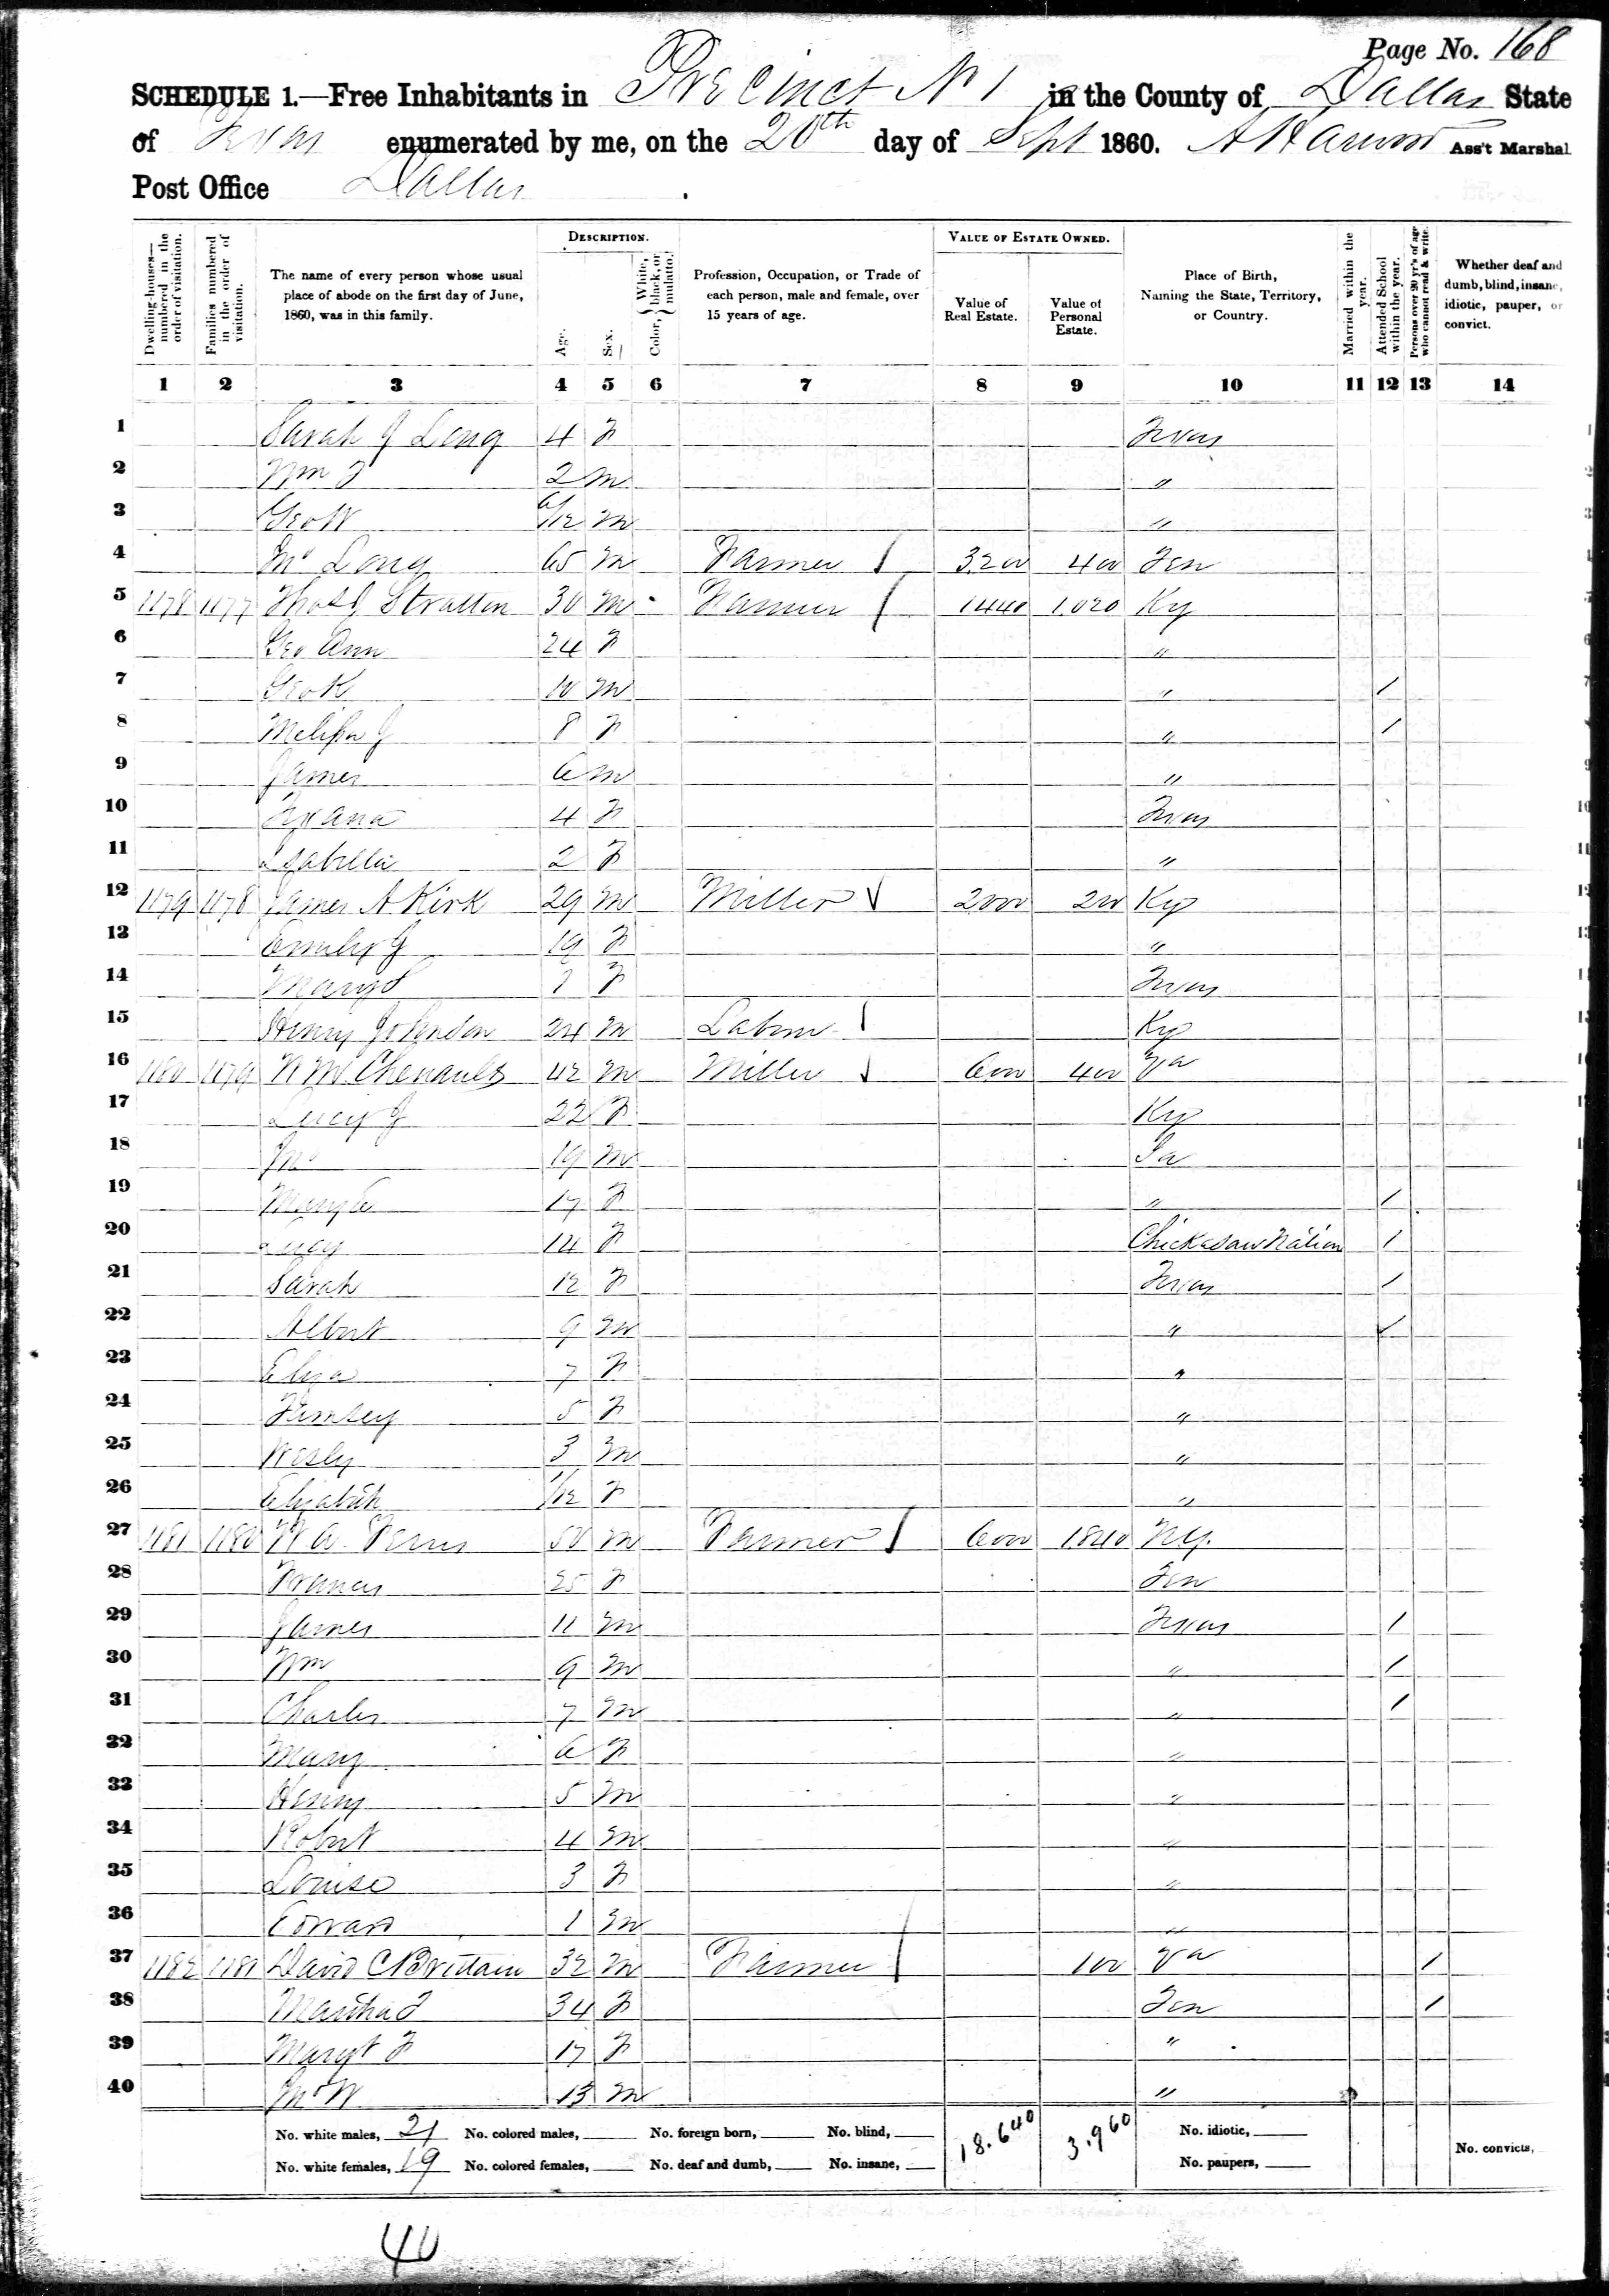 Page No. 168
SCHEDULE 1.—Free Inhabitants in Precinct N 1 in the County of Dallas State
of Texas enumerated by me, on the 20th day of Sept 1860. A Harwood Ass't Marshal
Post Office Dallas
Dwelling-houses—numbered in the order of visitation.
Families numbered in the order of visitation.
The name of every person whose usual place of abode on the first day of June, 1860, was in this family.
DESCRIPTION.
Age.
Sex.
Color, White, black, or mulatto.
Profession, Occupation, or Trade of each person, male and female, over 15 years of age.
VALUE OF ESTATE OWNED.
Value of Real Estate.
Value of Personal Estate.
Place of Birth, Naming the State, Territory, or Country.
Married within the year.
Attended School within the year.
Persons over 20 yr's of age who cannot read & write.
Whether deaf and dumb, blind, insane, idiotic, pauper, or convict.
1 2 3 4 5 6 7 8 9 10 11 12 13 14
1 Sarah J Long 4 F Texas
2 Wm F 2 m "
3 Geo W 6/12 m "
4 Jno Long 65 m Farmer 3200 400 Ten
5 1178 1177 Thos J Stratten 30 m Farmer 1440 1,020 Ky
6 Geo Ann 24 F "
7 Geo K 10 m " /
8 Melissa J 8 F " /
9 James 6 m "
10 Texana 4 F Texas
11 Isabella 2 F "
12 1179 1178 James A Kirk 29 m Miller 2000 200 Ky
13 Emily J 19 F "
14 Mary 1 F Texas
15 Henry Johnson 24 m Labor Ky
16 1180 1179 Wm Chenault 42 m Miller 6000 400 Va
17 Lucy J 22 F Ky
18 Jno 19 m
19 Mary E 17 F " /
20 Lucy 14 F Chickasaw Nation /
21 Sarah 12 F Texas /
22 Albert 9 m " /
23 Eliza 7 F "
24 5 F "
25 Wesly 3 m "
26 Elizabeth 1/12 F "
27 1181 1180 W A Ferris 50 m Farmer 6000 1840 N.Y.
28 Frances 25 F Ten
29 James 11 m Texas /
30 Wm 9 m " /
31 Charles 7 m " /
32 Mary 6 F "
33 Henry 5 m "
34 Robert 4 m "
35 Louise 3 F "
36 Edward 1 m "
37 1182 1181 David C Brittain 32 m Farmer 100 Va /
38 Martha J 34 F Ten /
39 Margt F 17 F "
40 Jno W 13 m "
No. white males, 21 No. colored males, No. foreign born, No. blind, 18.640 3.960 No. idiotic,
No. white females, 19 No. colored females, No. deaf and dumb, No. insane, No. paupers, No. convicts,
40